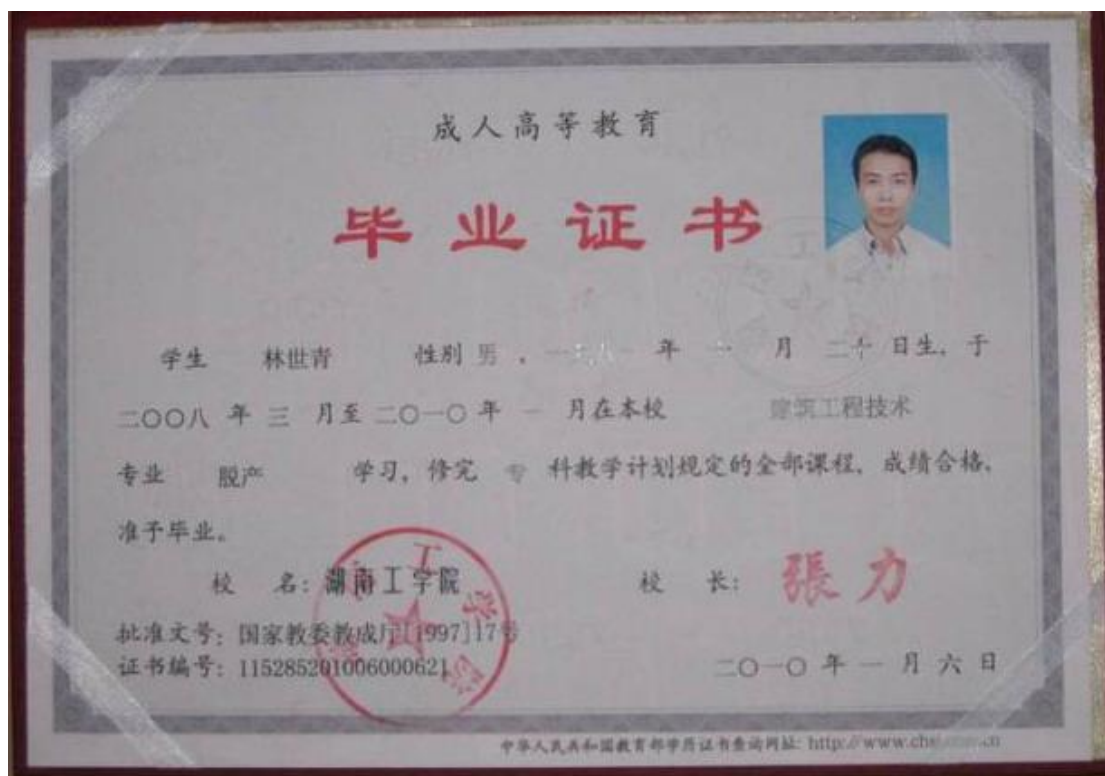 成人高等教育
毕业证书
学生 林世青 性别 男 , 一九八一 年 一 月 二十 日生, 于
二〇〇八 年 三 月至 二〇一〇 年 一 月在本校 建筑工程技术
专业 脱产 学习, 修完 专 科教学计划规定的全部课程, 成绩合格,
准予毕业。
校 名: 湖南工学院 校 长: 張力
批准文号: 国家教委教成厅[1997]17号
证书编号: 115285201006000621
二〇一〇 年 一 月 六 日
中华人民共和国教育部学历证书查询网址: http://www.chsi.com.cn